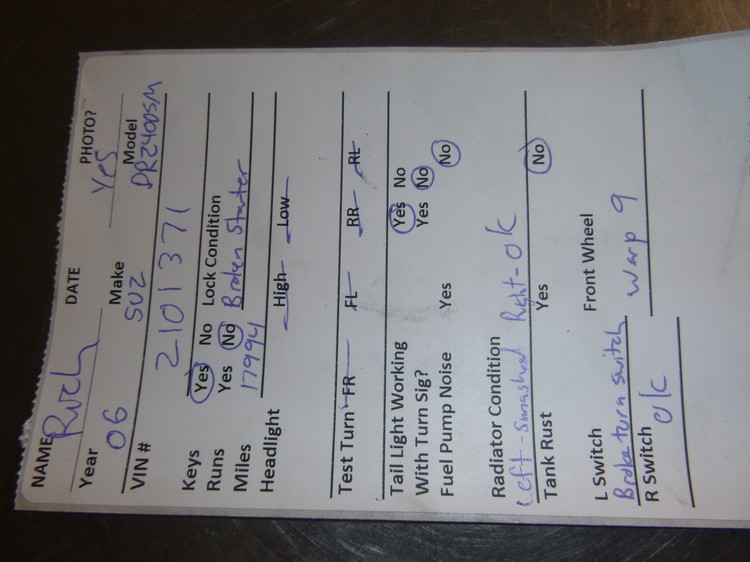 NAME Rich DATE PHOTO? Yes
Year 06 Make SUZ Model DRZ400SM
VIN # 2101371
Keys Yes No Lock Condition
Runs Yes No Broken Starter
Miles 17994
Headlight High Low
Test Turn FR FL RR RL
Tail Light Working Yes No
With Turn Sig? Yes No
Fuel Pump Noise Yes No
Radiator Condition
Left-smashed Right-ok
Tank Rust Yes No
L Switch Front Wheel
Broke turn switch warp 9
R Switch
ok